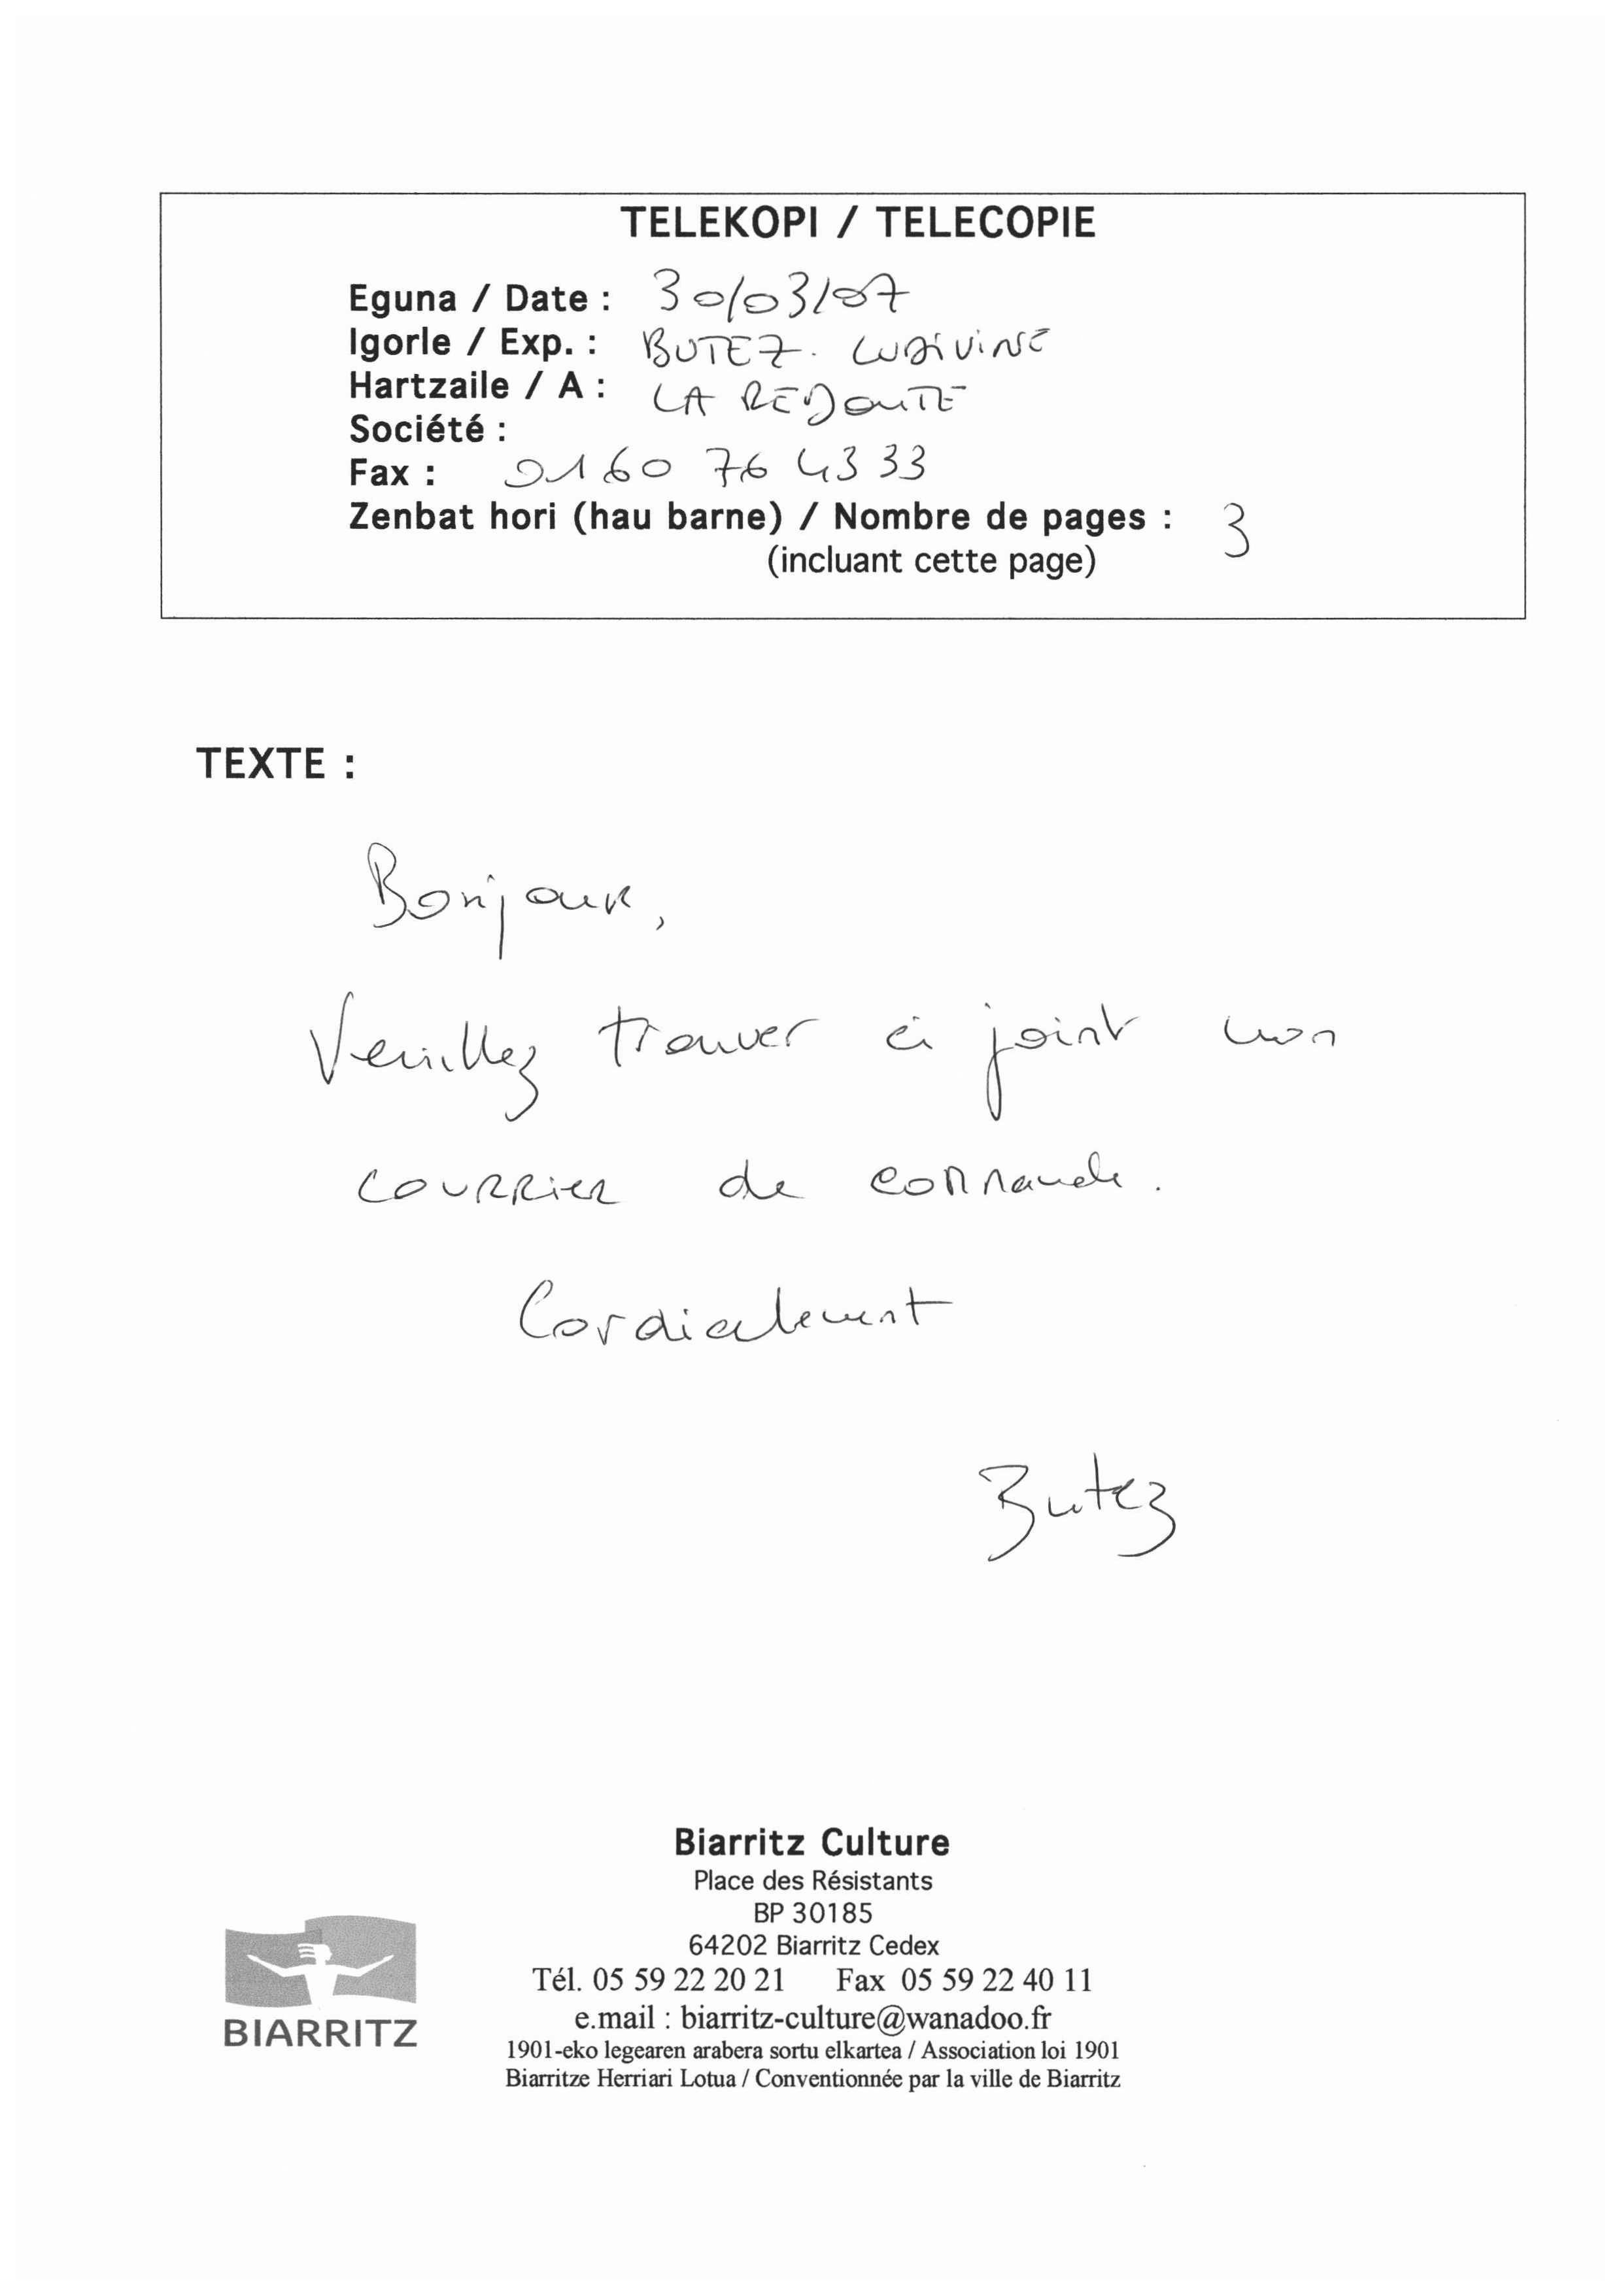 TELEKOPI / TELECOPIE
Eguna / Date : 30/03/07
Igorle / Exp. : BUTEZ. LUDIVINE
Hartzaile / A : LA REDOUTE
Société :
Fax : 01 60 76 43 33
Zenbat hori (hau barne) / Nombre de pages : 3
(incluant cette page)
TEXTE :
Bonjour,
Veuillez trouver ci joint mon
courrier de commande.
Cordialement
Butez
Biarritz Culture
Place des Résistants
BP 30185
64202 Biarritz Cedex
Tél. 05 59 22 20 21 Fax 05 59 22 40 11
e.mail : biarritz-culture@wanadoo.fr
1901-eko legearen arabera sortu elkartea / Association loi 1901
Biarritze Herriari Lotua / Conventionnée par la ville de Biarritz
BIARRITZ